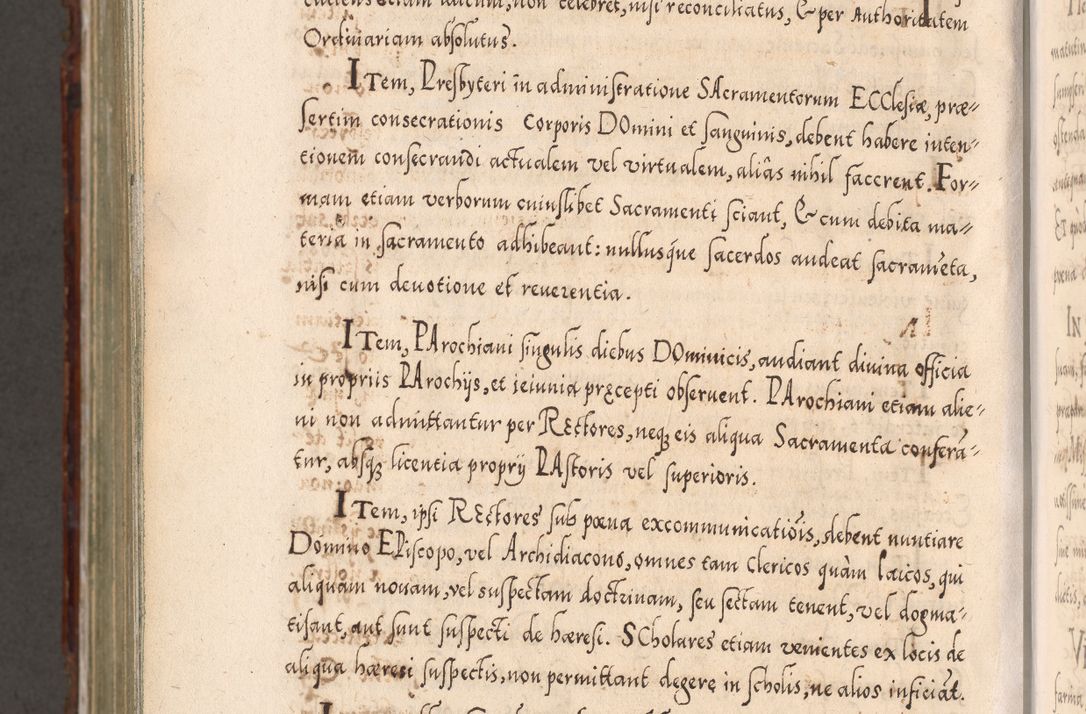 etiam aliculu, non celebret, nisi reconciliatus, & per Authoritatem
Ordinariam absolutus.
ITem, Presbyteri in administratione SAcramentorum ECClesiæ, præ=
sertim consecrationis Corporis DOmini et sanguinis, debent habere inten=
tionem consecrandi actualem vel virtualem, aliâs nihil facerent. For=
mam etiam verborum cuiuslibet Sacramenti sciant, & cum debita ma=
teria in sacramento adhibeant: nullusq́ue sacerdos audeat sacramēta,
nisi cum deuotione et reuerentia.
ITem, PArochiani singulis diebus DOminicis, audiant diuina officia
in propriis PArochijs, et ieiunia pręcepti obseruent. PArochiani etiam alie=
ni non admittantur per REctores, neqꝫ eis aliqua Sacramenta conferā=
tur, absqꝫ licentia proprij PAstoris vel superioris.
ITem, ipsi REctores sub pœna excommunicatiōis, debent nuntiare
Domino EPiscopo, vel Archidiacono, omnes tam Clericos quàm laicos, qui
aliquam nouam, vel suspectam doctrinam, seu sectam tenent, vel dogma=
tisant, aut sunt suspecti de hæresi. SCholares etiam venientes ex locis de
aliqua hæresi suspectis, non permittant degere in scholis, ne alios inficiāt.
matutin
IN